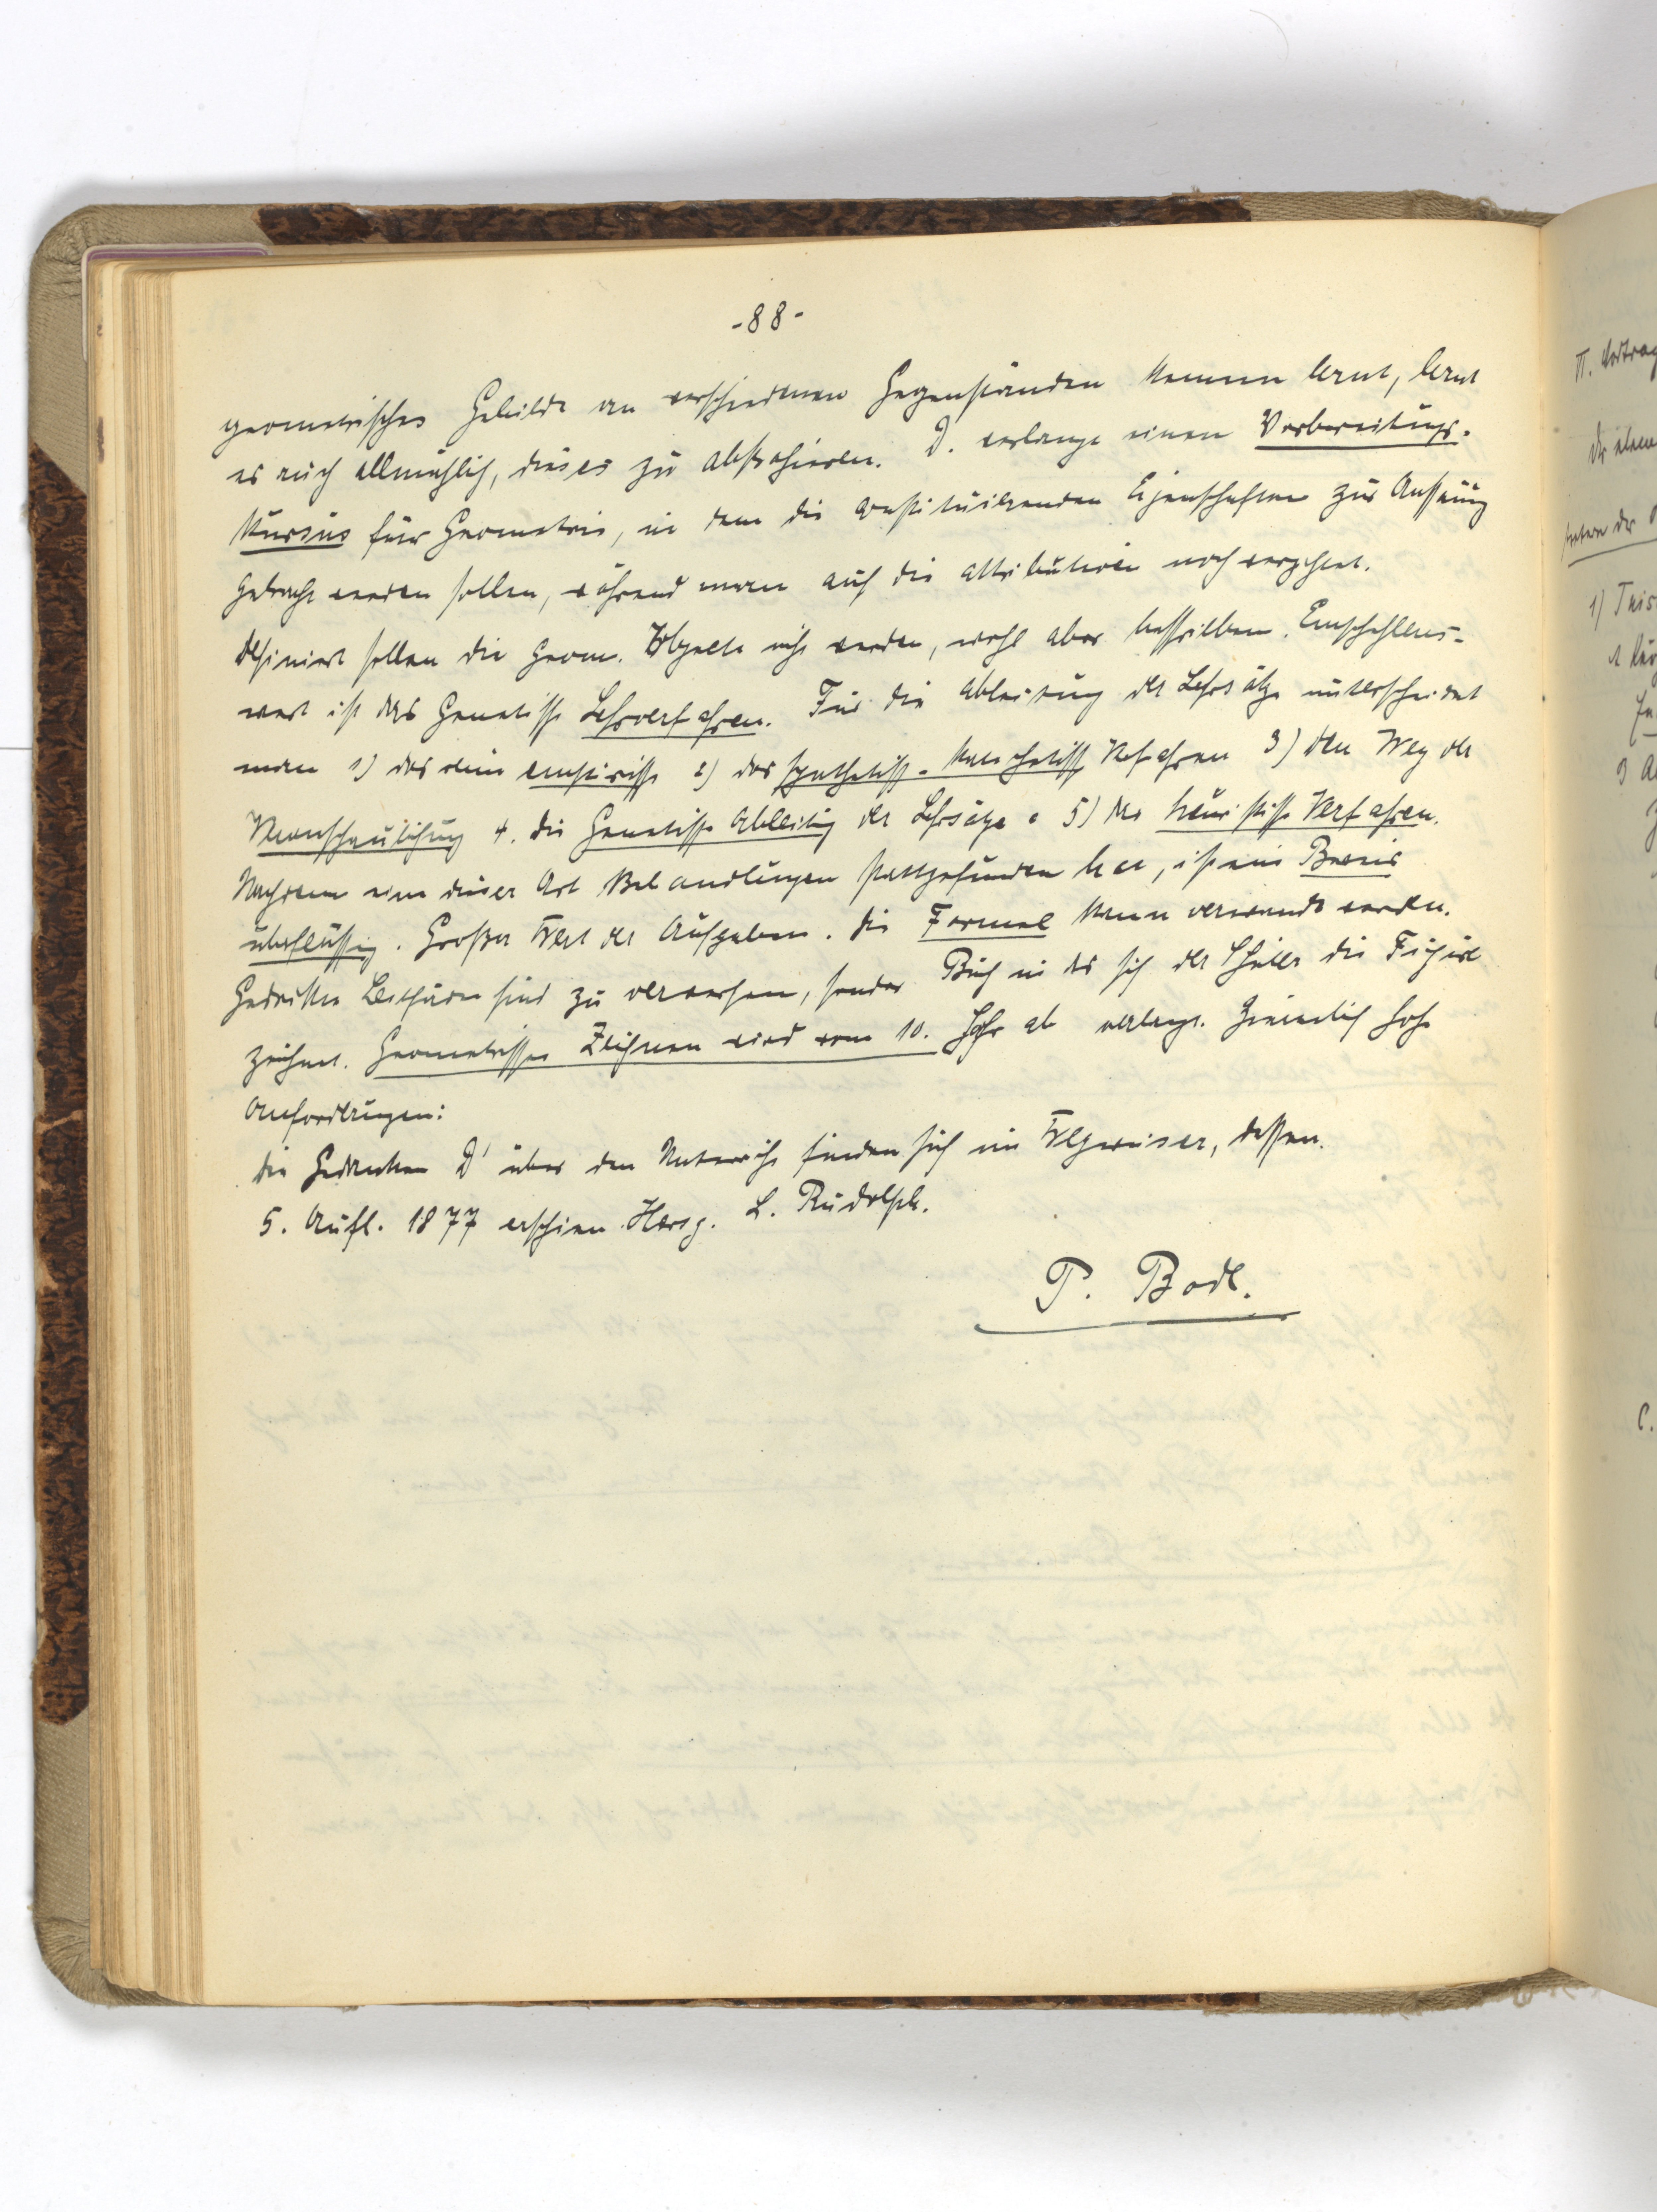 -88-
geometrisches Gebilde an verschiedenen Gegenständen kennen lernt, lernt
es auch allmählich, dieses zu abstrahieren. D. verlangt einen Vorbereitungs-
kursus für Geometrie, in dem die constituirenden Eigenschaften zur Auffassung
gebracht werden sollen, während man auf die attributiven noch verzichtet.
Definiert sollen die geom. Objecte nicht werden, wohl aber beschrieben. Empfehlens-
wert ist das genetische Lehrverfahren. Für die Ableitung der Lehrsätze unterscheidet
man 1) das rein empirische 2) das synthetisch- Verfahren 3) den Weg der
Veranschaulichung 4. die genetische Ableitung der Lehrsätze 5) das heuristische Verfahren.
Nachdem eine dieser Art Behandlungen stattgefunden hat, ist ein Beweis
überflüssig. Großer Wert der Aufgaben. Die Formel kann verwandt werden.
Gedruckte Leitfäden sind zu verwerfen, sonder Buch in das sich der Schüler die Figur
zeichnet. Geometrisches Zeichnen wird vom 10. Jahr ab verlangt. Ziemlich hohe
Anforderungen:
die Gedanken D' über den Unterricht finden sich im Wegweiser, dessen
5. Aufl. 1877 erschien. Hersg. L. Rudolph.
P. Bode.
II. Vortrag
1)
C.